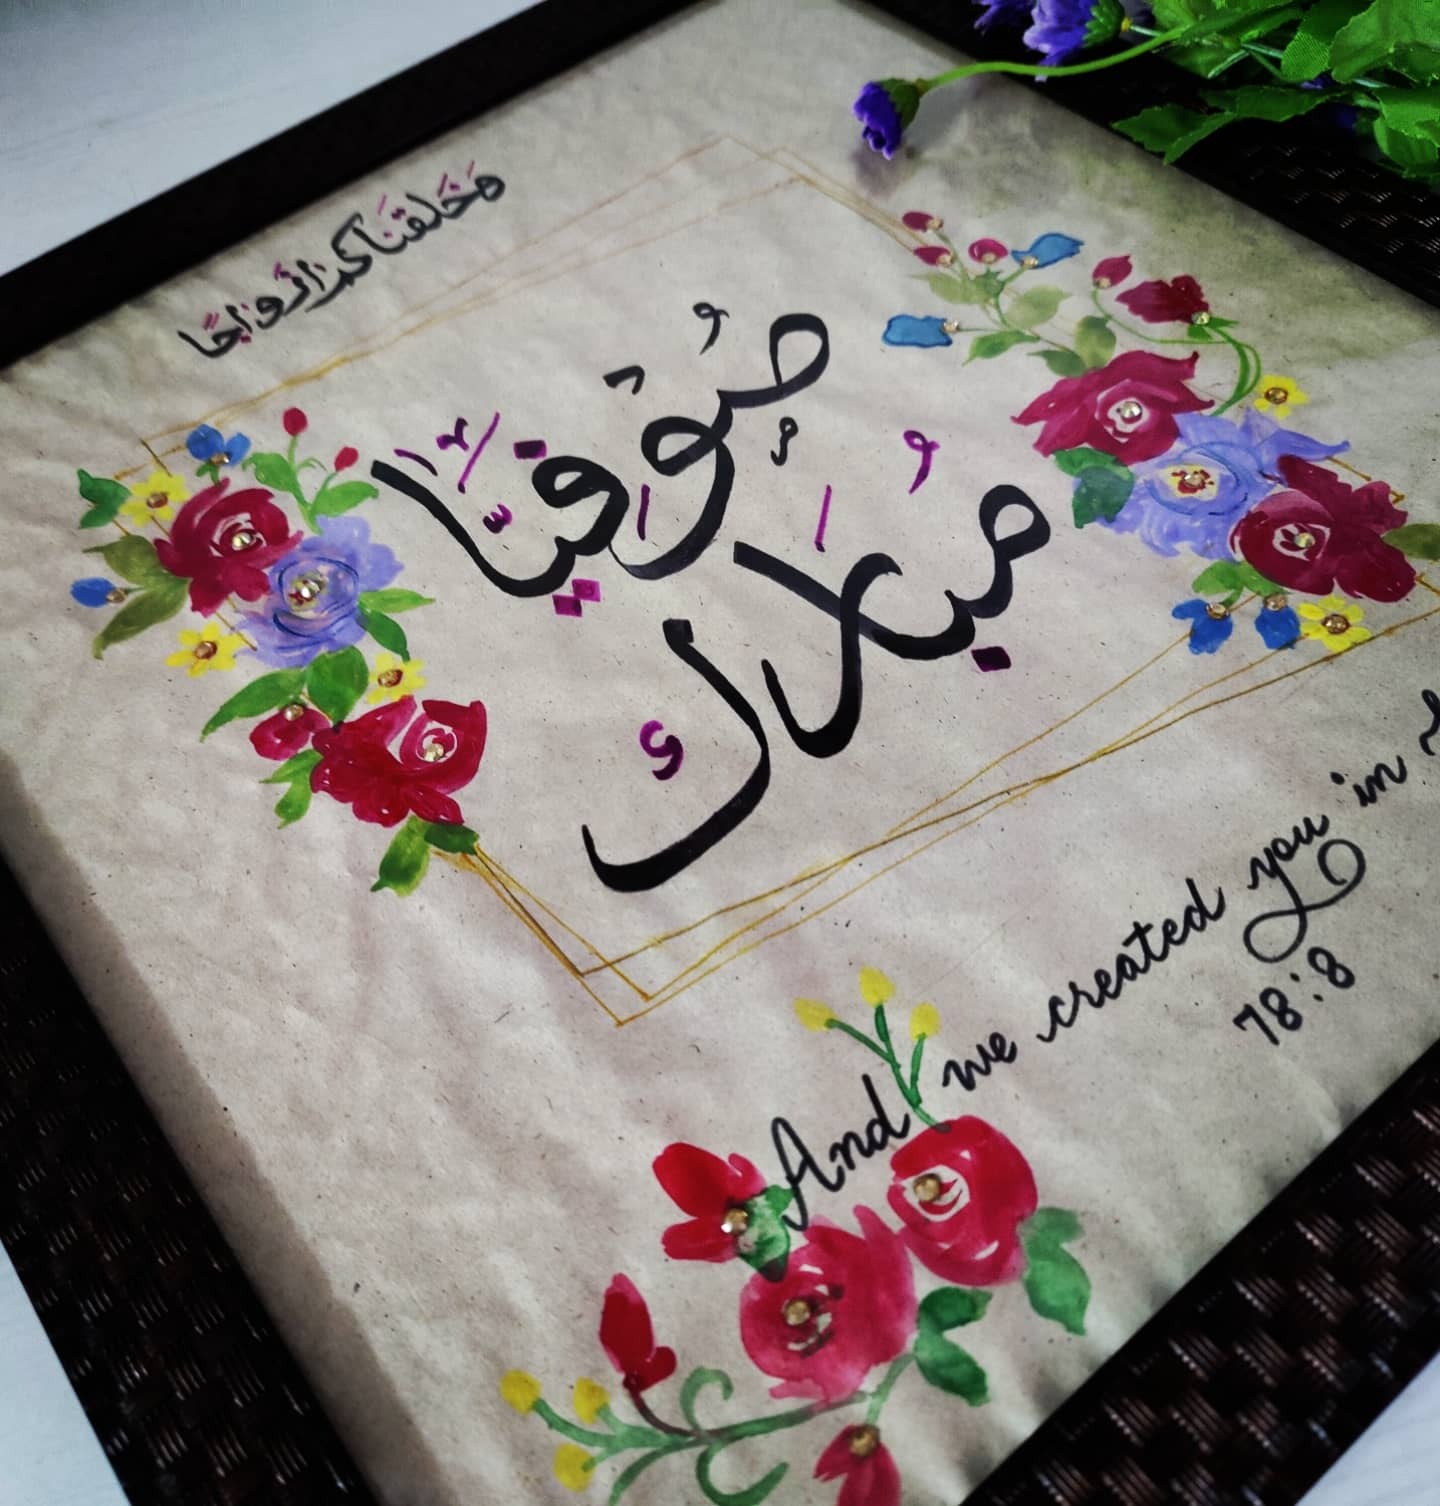 وَخَلَقْنَاكُمْ أَزْوَاجًا
صُوْفِيَّا
مُبَارَك
And we created you in
78:8